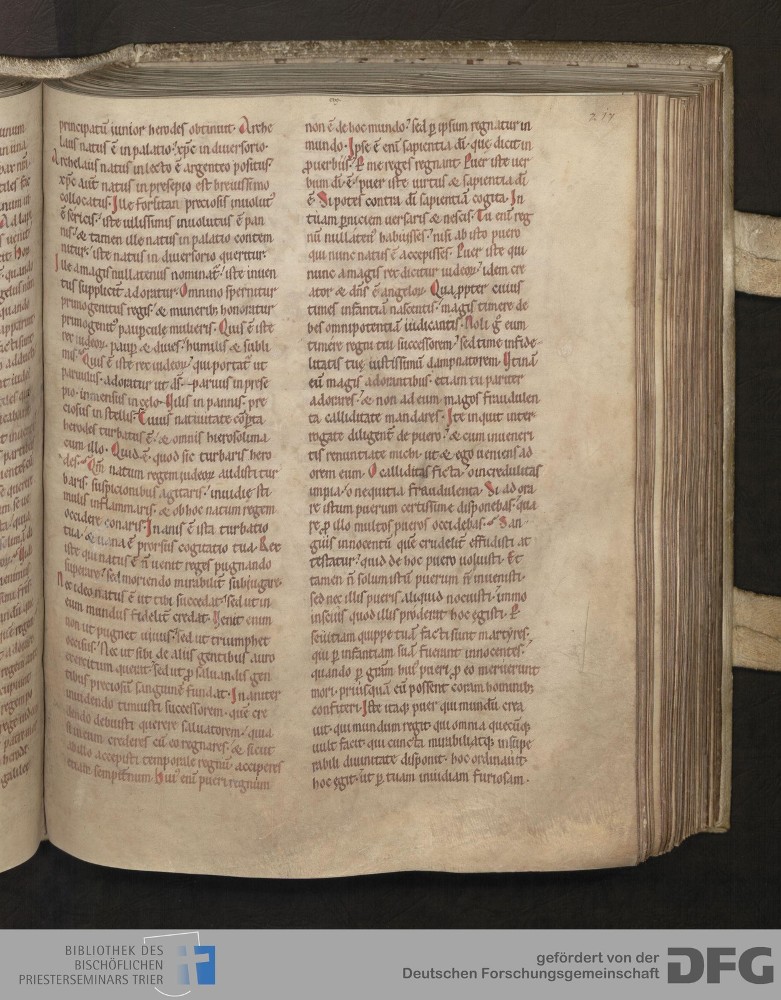 217
principatū iunior herodes obtinuit· Arche
laus natus ē in palatio· xp̄c in diuersorio·
Archelaus natus in lecto ē argenteo positus·
xp̄c aut̄ natus in presepio est breuissimo
collocatus· Ille forsitan preciosis inuolut᷒
ē sericis· iste uilissimis inuolutus ē pan
nis· & tamen ille natus in palatio contem
nitur· iste natus in diuersorio queritur·
Ille a magis nullatenus nominat̄· iste inuen
tus suppliciť adoratur· Omnino spernitur
primogenitus regis· & muneribꝫ honoratur
primogenit᷒ paupcule mulieris· Quis ē iste
rex iudeoꝝ paup̄ & diues· humilis & subli
mis· Quis ē iste rex iudeoꝝ qui portat̄ ut
paruulus· adoratur ut ds̄· paruus in prese
pio· inmensus in celo· Uilis in pannis· pre
ciosus in stellis· Cuius natiuitate cōpta
herodes turbatus ē· & omnis hierosolima
cum illo· Quid ē quod sic turbaris hero
des· Qm̄ natum regem iudeoꝝ audisti tur
baris· suspicionibus agitaris· inuidię sti
mulis inflammaris· & ob hoc natum regem
occidere conaris· Inanis ē ista turbatio
tua· & uana ē prorsus cogitatio tua· Rex
iste qui natus ē n̄ uenit reges pugnando
superare· sed moriendo mirabiliť subiugare·
Nec ideo natus ē ut tibi succedat· sed ut in
eum mundus fideliť credat· Uenit enim
non ut pugnet uiuus· sed ut triumphet
occisus· Nec ut sibi de aliis gentibus auro
exercitum querat· sed ut ꝓ saluandis gen
tibus preciosū sanguinē fundat· Inaniter
inuidendo timuisti successorem· quē cre
dendo debuisti querere saluatorem· quia
si in eum crederes cū eo regnares· & sicut
ab illo accepisti temporale regnū· acciperes
etiam sempiternum· Hui᷒ enī pueri regnum
non ē de hoc mundo· sed ꝑ ipsum regnatur in
mundo· Ipse ē enī sapientia dī· que dicit in
ꝓuerbiis· P me reges regnant· Puer iste uer
bum dī ē· puer iste uirtus & sapientia dī
ē· Si potes contra dī sapientiā cogita· In
tuam ꝑniciem uersaris & nescis· Tu enī reg
nū nullaten᷒ habuisses· nisi ab isto puero
qui nunc natus ē accepisses· Puer iste qui
nunc a magis rex dicitur iudeoꝝ· idem cre
ator & dn̄s ē angeloꝝ· Qua ꝓpter cuius
times infantiā nascentis· magis timere de
bes omnipotentiā iudicantis· Noli g̊ eum
timere regni tui successorem· sed time infide
litatis tuę iustissimū dampnatorem· Utinā
eū magis adorantibus· etiam tu pariter
adorares· & non ad eum magos fraudulen
ta calliditate mandares· Ite inquit inter
rogate diligenť de puero· & cum inueneri
tis renuntiate michi· ut & ego ueniens ad
orem eum· O calliditas ficta· o incredulitas
impia· o nequitia fraudulenta· Si adora
re istum puerum certissime disponebas· qua
re ꝓ illo multos pueros occidebas· San
guis innocentū quē crudeliť effudisti at
testatur· quid de hoc puero uoluisti· Et
tamen n̄ solum istū puerum n̄ inuenisti·
sed nec illis pueris aliquid nocuisti· immo
insciis quod illis prodeat̄ hoc egisti· P
seuitiam quippe tuā facti sunt martyres·
qui ꝑ infantiam suā fuerunt innocentes·
quando ꝑ grām hui᷒ pueri· ꝓ eo meruerunt
mori· priusquā eū possent coram hominibꝫ
confiteri· Iste itaqꝫ puer qui mundū crea
uit· qui mundum regit· qui omnia quecūqꝫ
uult facit· qui cuncta mirabiliaqꝫ insupe
rabili diuinitate disponit· hoc ordinauit·
hoc egit· ut ꝑ tuam inuidiam furiosam·
BIBLIOTHEK DES
BISCHÖFLICHEN
PRIESTERSEMINARS TRIER
gefördert von der
Deutschen Forschungsgemeinschaft
DFG